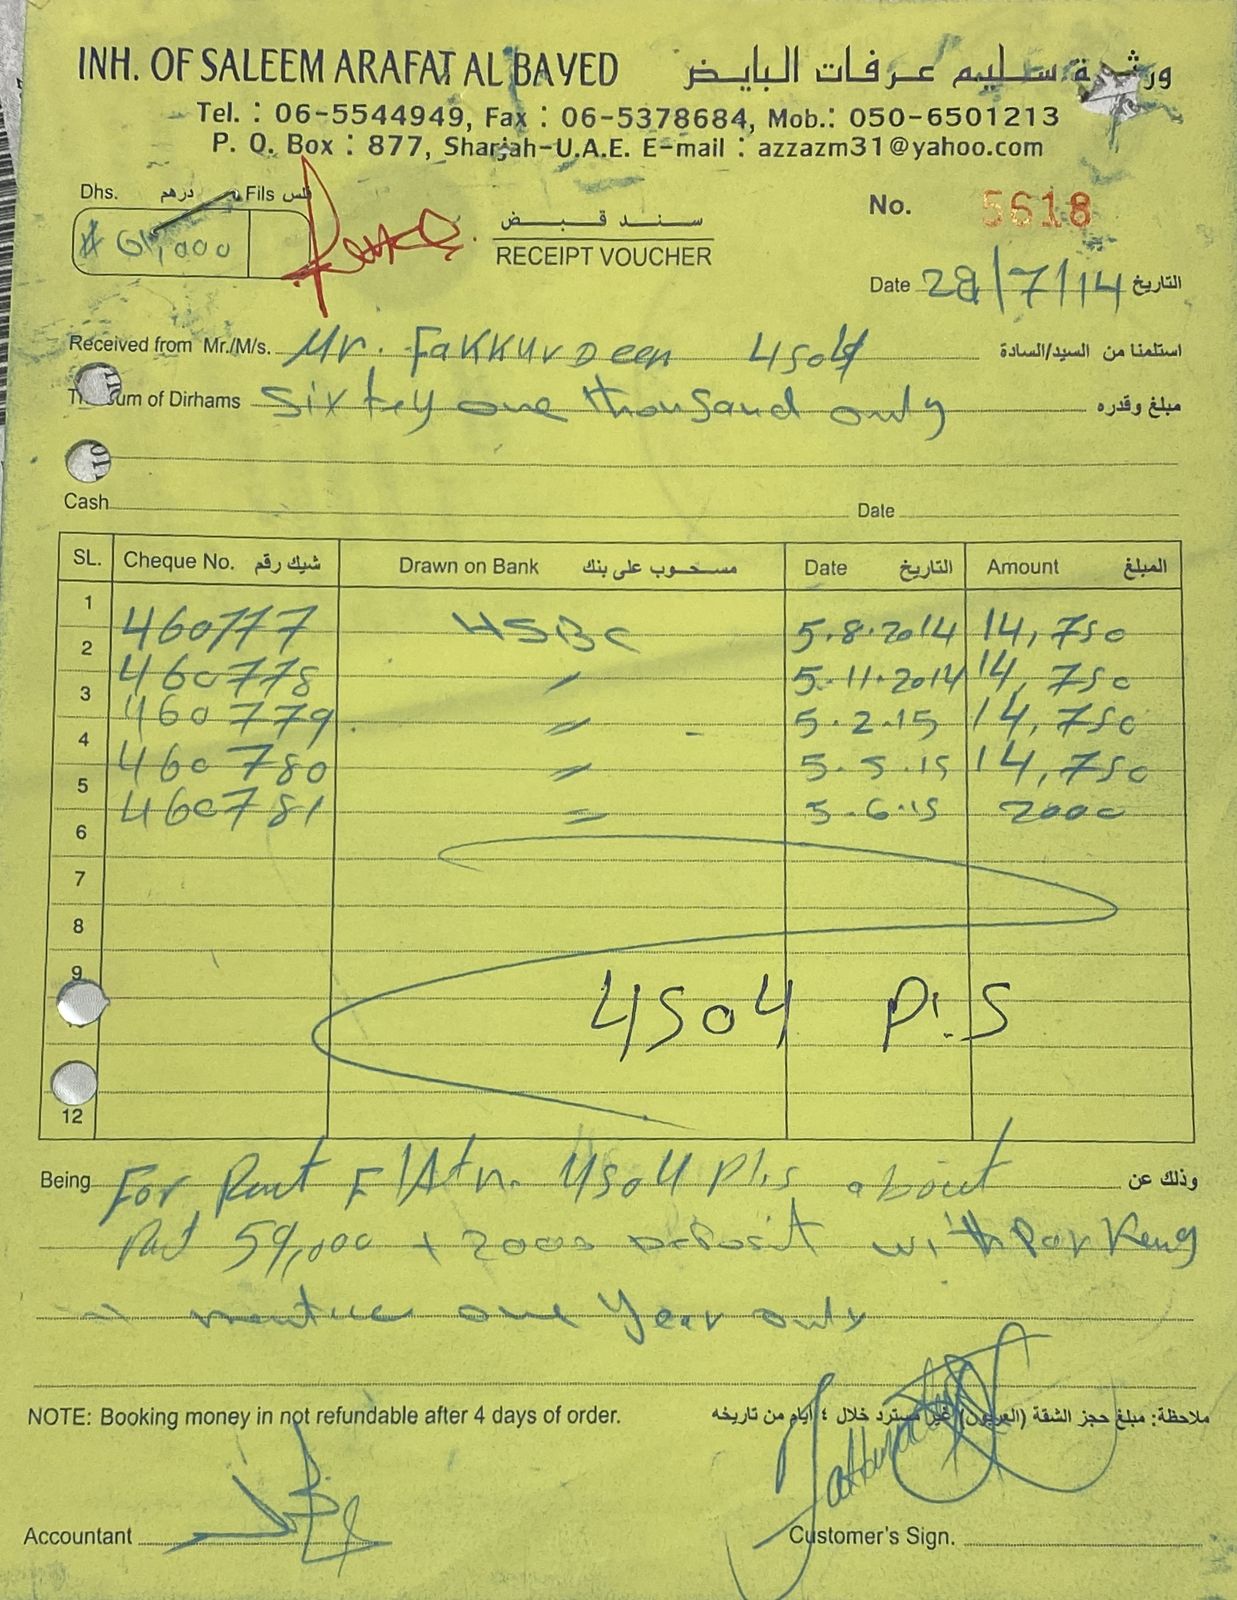 INH. OF SALEEM ARAFAT AL BAYED ورثة سليم عرفات البايض
Tel. : 06-5544949, Fax : 06-5378684, Mob.: 050-6501213
P. O. Box : 877, Sharjah-U.A.E. E-mail : azzazm31@yahoo.com
Dhs. درهم Fils فلس
# 61,000
سند قبض
RECEIPT VOUCHER
No. 5618
Date 28/7/14 التاريخ
Received from Mr./M/s. Mr. Fakkurdeen 4504 استلمنا من السيد/السادة
Sum of Dirhams Sixtey one thousand only مبلغ وقدره
Cash Date
SL. Cheque No. شيك رقم Drawn on Bank مسحوب على بنك Date التاريخ Amount المبلغ
1 460777 HSBC 5.8.2014 14,750
2 460778 〃 5.11.2014 14,750
3 460779 〃 5.2.15 14,750
4 460780 〃 5.5.15 14,750
5 460781 〃 5.6.15 2000
6
7
8
9
4504 P.S
12
Being For Rent F/Atn. 4504 P.S about وذلك عن
59,000 + 2000 Deposit with Parkeng
one Year only
NOTE: Booking money in not refundable after 4 days of order. ملاحظة: مبلغ حجز الشقة (العربون) غير مسترد خلال ٤ ايام من تاريخه
Accountant
Customer's Sign.